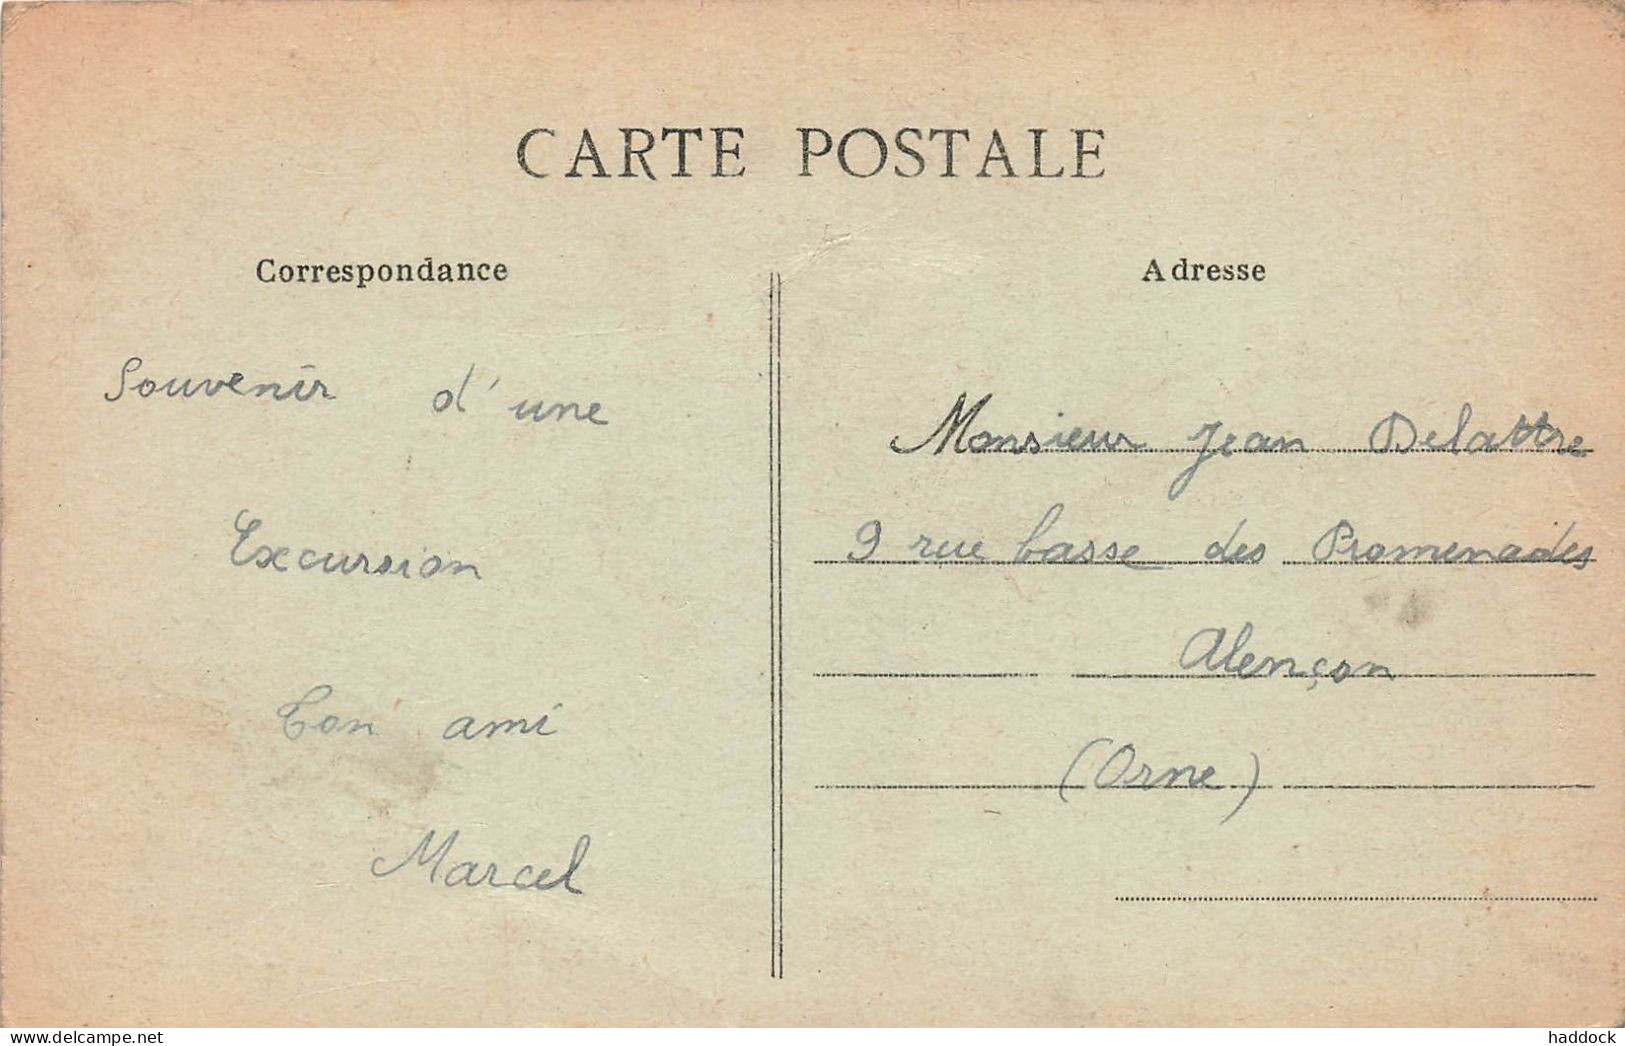 CARTE POSTALE
Correspondance
Souvenir d'une
Excursion
ton ami
Marcel
Adresse
Monsieur Jean Delattre
9 rue basse des Promenades
Alençon
(Orne)
www.delcampe.net
haddock